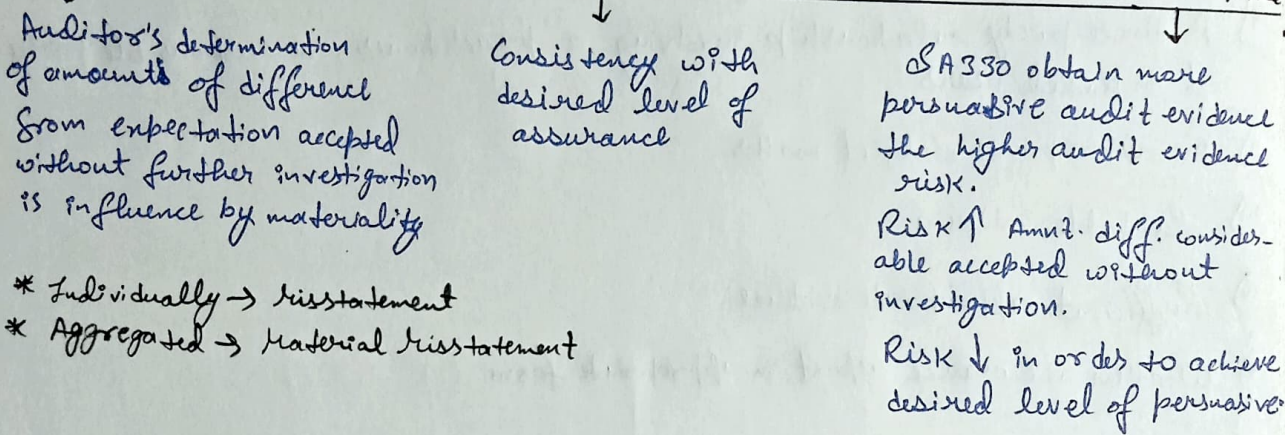 Auditor's determination
of amounts of difference
from expectation accepted
without further investigation
is influence by materiality
* Individually → Misstatement
* Aggregated → Material Misstatement
Consistency with
desired level of
assurance
SA330 obtain more
persuasive audit evidence
the higher audit evidence
risk.
Risk ↑ Amnt. diff. consider-
able accepted without
investigation.
Risk ↓ in order to achieve
desired level of persuasive.